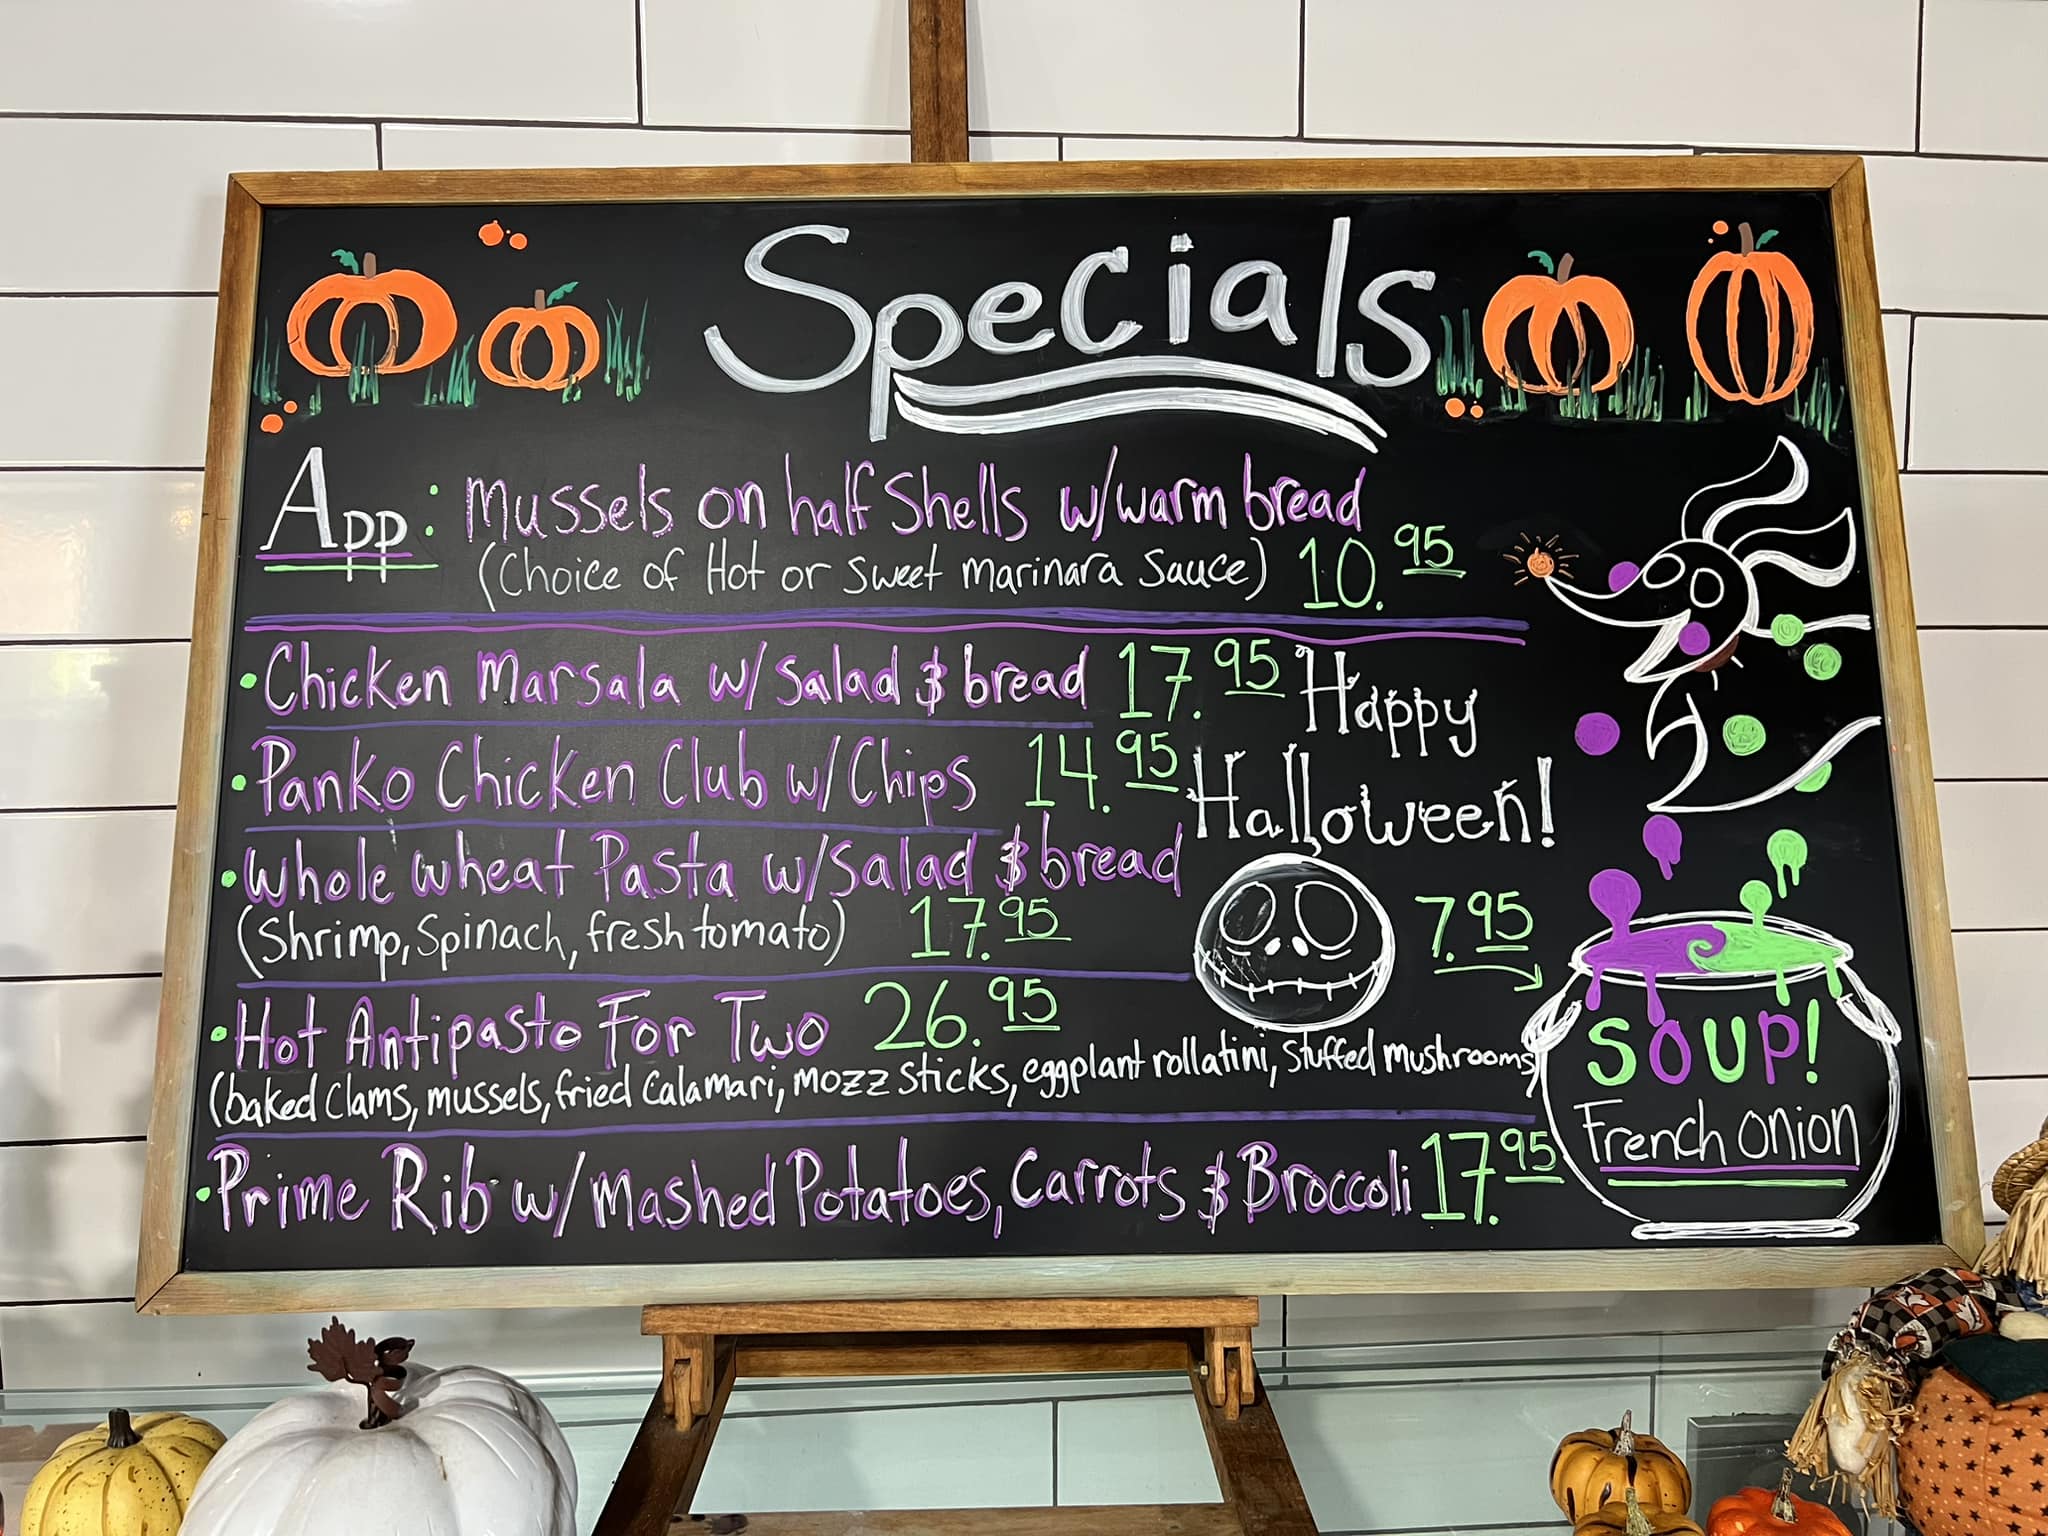 Specials
App: Mussels on half Shells w/warm bread
(Choice of Hot or Sweet Marinara Sauce) 10.95
• Chicken Marsala w/ Salad & bread 17.95
• Panko Chicken Club w/ Chips 14.95
• Whole wheat Pasta w/ Salad & bread
(Shrimp, Spinach, fresh tomato) 17.95
• Hot Antipasto For Two 26.95
(baked clams, mussels, fried calamari, mozz sticks, eggplant rollatini, stuffed mushrooms)
• Prime Rib w/ Mashed Potatoes, Carrots & Broccoli 17.95
Happy
Halloween!
7.95
SOUP!
French Onion